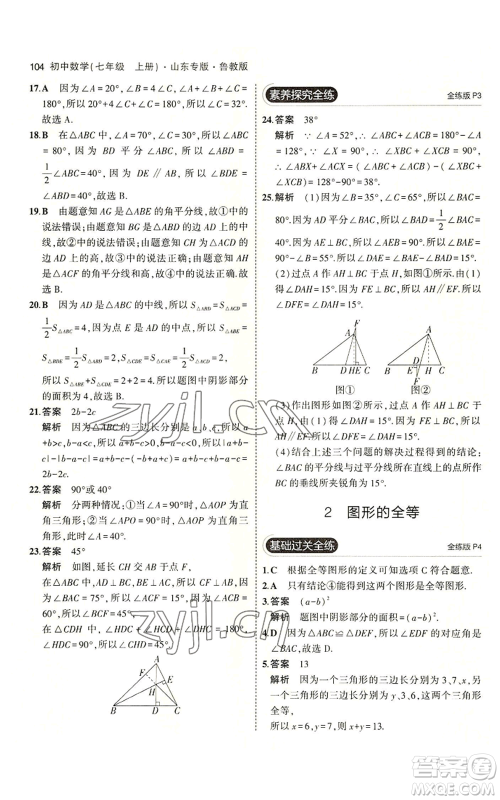 104 初中数学(七年级　上册)·山东专版·鲁教版
17.A　因为∠A=20°,所以∠B=4∠A=80°,所以
∠C=180°-∠A-∠B=80°,故选A.
18.B　在△ABC中,∠A=70°,∠C=30°,所以
∠ABC=80°,因为BD平分∠ABC,所以∠ABD=
1/2∠ABC=40°,因为DE∥AB,所以∠BDE=
∠ABD=40°,故选B.
19.B　由题意知AG是△ABE的角平分线,故①中的
说法错误;由题意知BG是△ABD的中线,故②中
的说法错误;由题意知CH为△ACD的边AD上的
高,故③中的说法正确;由题意知AH是
△ACF的角平分线和高,故④中的说法正确.故
选B.
20.B　因为AD是△ABC的中线,所以S△ABD=S△ACD=
1/2S△ABC=4,因为点E是AD的中点,所以S△ABE=
S△BDE=1/2S△ABD=2,S△CDE=1/2S△ACD=2,
所以S△BDE+S△CDE=2+2=4.由题图可知阴影部分
的面积为4,故选B.
21.答案　2b-2c
解析　因为△ABC的三边长分别是a、b、c,所以a
+b>c,b-a<c,所以a+b-c>0,b-a-c<0,所以|a+b-
c|-|b-a-c|=a+b-c-(-b+a+c)=a+b-c+b-a-c=
2b-2c.
22.答案　90°或40°
解析　分两种情况:①当∠A=90°时,△AOP为直
角三角形;②当∠APO=90°时,△AOP为直角三
角形,此时∠A=40°.
23.答案　45°
解析　如图,延长CH交AB于点F,在△ABC中,
三边上的高交于一点,所以CF⊥AB,因为∠BAC
=75°,CF⊥AB,所以∠ACF=15°,因为∠ACB=
60°,所以∠BCF=∠ACB-∠ACF=45°,
在△CDH中,∠HDC+∠HCD+∠CHD=180°,
∠HDC=90°,所以∠CHD=45°.
A
F
E
H
B
D
C
素养探究全练　全练版P3
24.答案　38°
解析　∵∠A=52°,∴∠ABC+∠ACB=180°-52°=
128°,∵∠X=90°,∴∠XBC+∠XCB=90°,
∴∠ABX+∠ACX=(∠ABC+∠ACB)-(∠XBC+
∠XCB)=128°-90°=38°.
25.解析　(1)因为∠B=35°,∠C=65°,所以∠BAC=
80°,因为AD平分∠BAC,所以∠BAD=∠CAD=
40°,因为AE⊥BC,所以∠AEC=90°,所以∠CAE=
25°,所以∠DAE=∠CAD-∠CAE=15°.
(2)过点A作AH⊥BC于H,如图①所示,由(1)知
∠DAH=15°,因为FE⊥BC,所以AH∥EF,所以
∠DFE=∠DAH=15°.
A
F
B
DHE
C
图①
A
B
E
D
F
C
图②
(3)过点A作AH⊥BC于H,如图②,由(1)知
∠DAH=15°,因为FE⊥BC,所以AH∥EF,所以
∠DFE=∠DAH=15°.
(4)结合上述三个问题的解决过程可得到
∠BAC的平分线与过平分线上的点所作的
BC的垂线所在直线的夹锐角为15°.
2　图形的全等
基础过关全练　全练版P4
1.C　根据全等图形的定义可知选项C符合题意.
2.A　只有结论④能推出这两个图形是全等图形.
3.答案　(a-b)²
解析　题图中阴影部分的面积=(a-b)².
4.D　因为△ABC≌△DEF,所以∠E的对应角是
∠B.
5.答案　13
解析　因为一个三角形的三边长分别为3、7、x,另
一个三角形的三边长分别为y、3、6,这两个三角形
全等,
所以x=6,y=7,所以x+y=13.